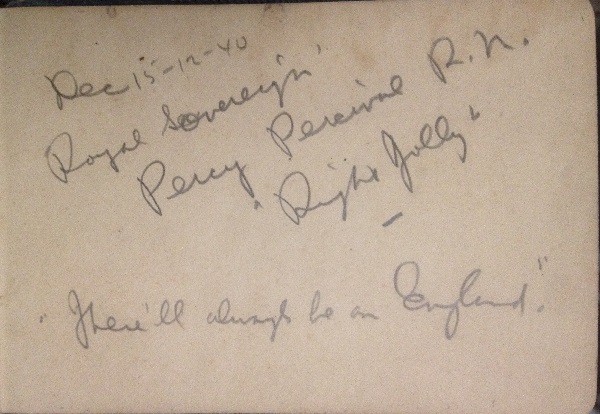 Dec 15-12-40
Royal Sovereign'
Percy Percival R.N.
"Right Jolly"
"There'll always be an England."